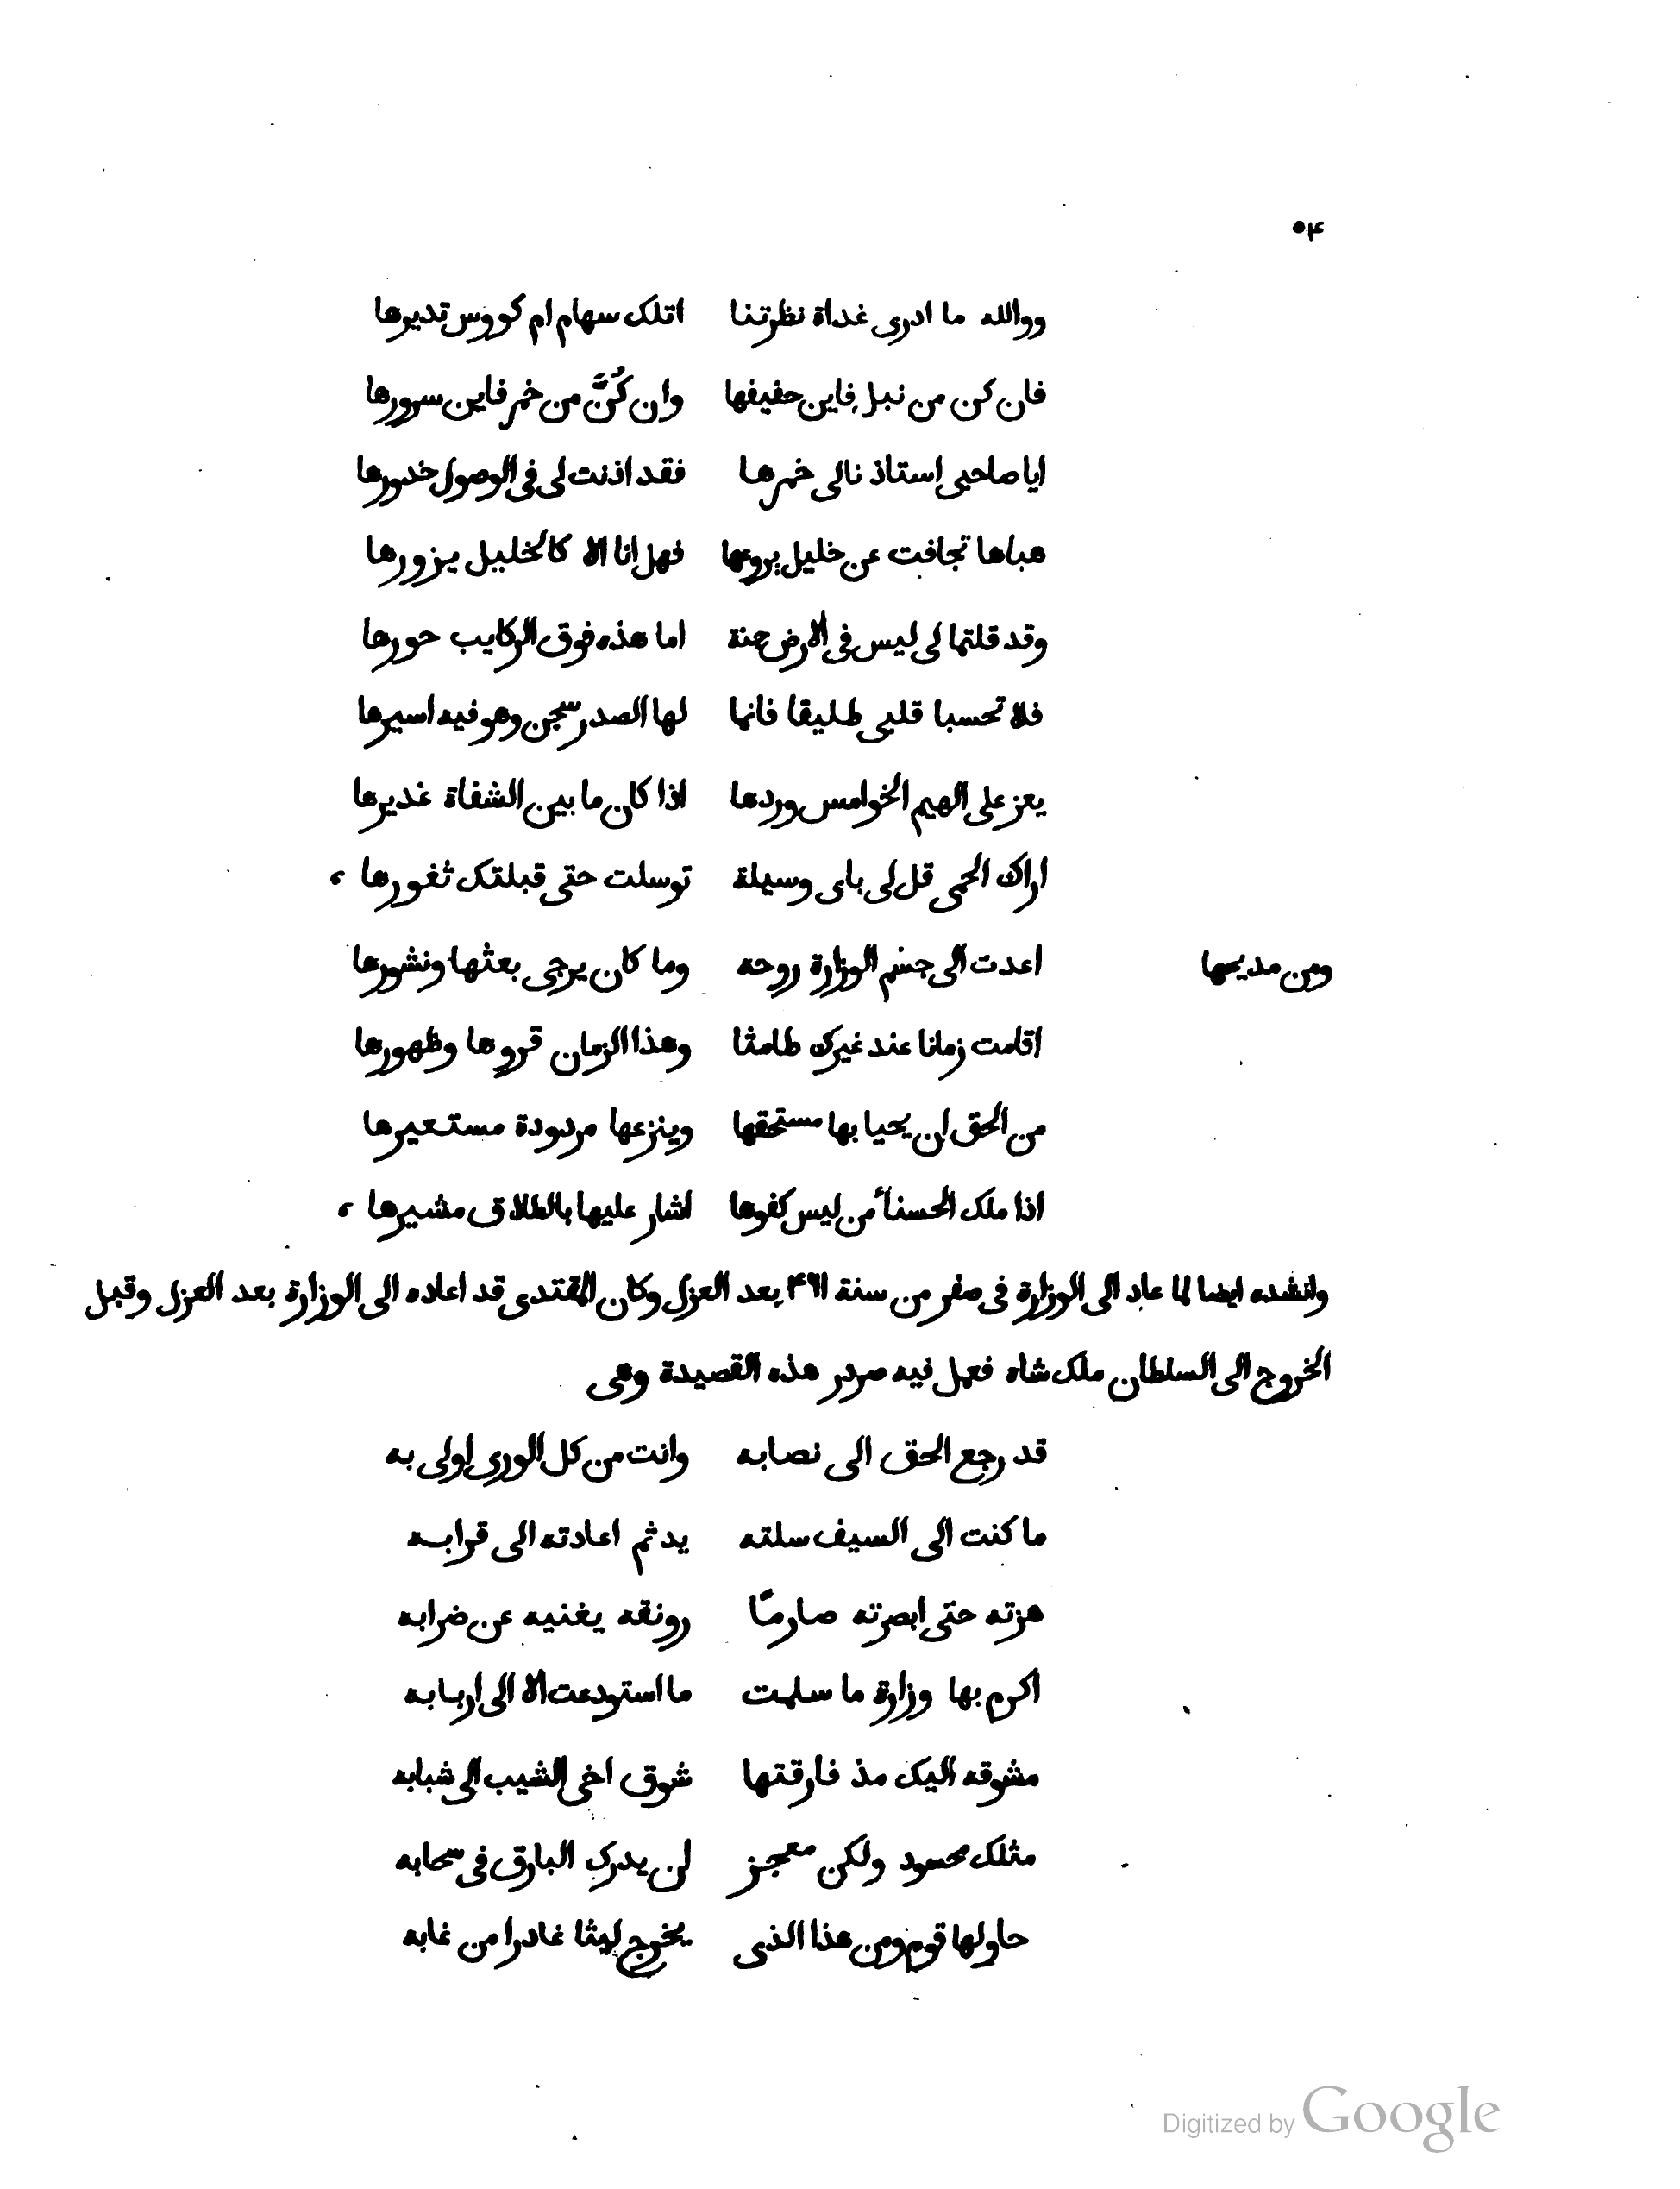 ٥۴
ووالله ما ادرى غداة نظرتنا اتلك سهام ام كووس تديرها
فان كن من نبل فاين حفيفها وان كُنَّ من خمر فاين سرورها
ايا صاحبى استاذ نالى خمرها فقد اذنت لى فى الوصول خدورها
هباها تجافت عن خليل يروعها فهل انا الا كالخليل يزورها
وقد قلتما لى ليس فى الارض جنة اما هذه فوق الركايب حورها
فلا تحسبا قلبى طليقا فانما لها الصدر سجن وهو فيه اسيرها
يعز على الهيم الخوامس وردها اذا كان ما بين الشفاة غديرها
اراك الحمى قل لى باى وسيلة توسلت حتى قبلتك ثغورها ،
ومن مديحها اعدت الى جسم الوزارة روحه وما كان يرجى بعثها ونشورها
اقامت زمانا عند غيرك طامثا وهذا الزمان قروها وظهورها
من الحق ان يحيا بها مستحقها وينزعها مردودة مستعيرها
اذا ملك الحسنأ من ليس كفوها اشار عليها بالطلاق مشيرها ،
وانشده ايضا لما عاد الى الوزارة فى صفر من سنة ۴٦١ بعد العزل وكان المقتدى قد اعاده الى الوزارة بعد العزل وقبل
الخروج الى السلطان ملك شاه فعمل فيه صردر هذه القصيدة وهى
قد رجع الحق الى نصابه وانت من كل الورى اولى به
ما كنت الى السيف سلته يد ثم اعادته الى قرابه
هزته حتى ابصرته صارمًا رونقه يغنيه عن ضرابه
اكرم بها وزارة ما سلمت ما استودعت الا الى اربابه
مشوقه اليك مذ فارقتها شوق اخى الشيب الى شبابه
مثلك محسود ولكن معجز لن يدرك البارق فى سحابه
حاولها قوم ومن هذا الذى يخرج ليثا غادرا من غابه
Digitized by Google